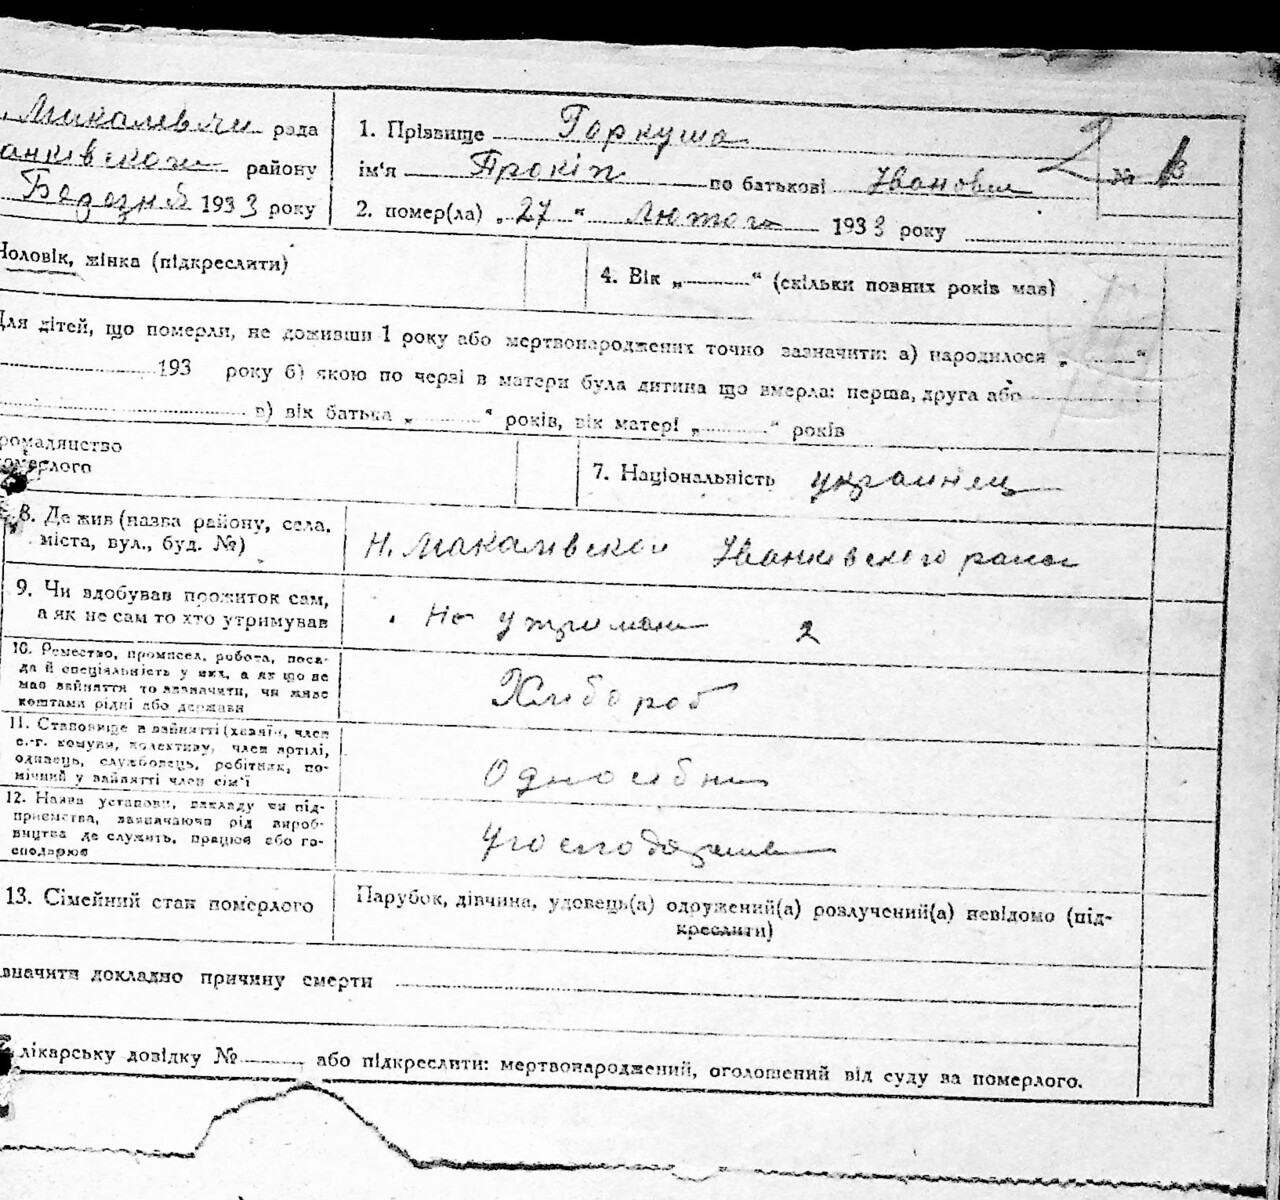 рада
району
Березня 1933 року
1. Прізвище Гаркуша
ім'я Прокіп по батькові Іванович
2. помер(ла) „27“ Лютого 1933 року
№
Чоловік, жінка (підкреслити)
4. Вік „ “ (скільки повних років мав)
Для дітей, що померли, не доживши 1 року або мертвонароджених точно зазначити: а) народилося „ “
193 року б) якою по черзі в матери була дитина що вмерла: перша, друга або
в) вік батька „ “ років, вік матері „ “ років
громадянство
померлого
7. Національність украинец
8. Де жив (назва району, села,
міста, вул., буд. №)
Іванківского
9. Чи здобував прожиток сам,
а як не сам то хто утримував
2
10. Ремество, промисел, робота, поса-
да й спеціяльність у них, а як що не
мав зайняття то зазначити, чи живе
коштами рідні або держави
Хлібороб
11. Становище в зайнятті (хазяїн, член
с.-г. комуни, колективу, член артілі,
одинець, службовець, робітник, по-
мічний у зайнятті член сім'ї
Одноосібник
12. Назва установи, закладу чи під-
приємства, зазначаючи рід вироб-
ництва де служить, працює або го-
сподарює
13. Сімейний стан померлого
Парубок, дівчина, удовець(а) одружений(а) розлучений(а) невідомо (під-
креслити)
значити докладно причину смерти
лікарську довідку № або підкреслити: мертвонароджений, оголошений від суду за померлого.